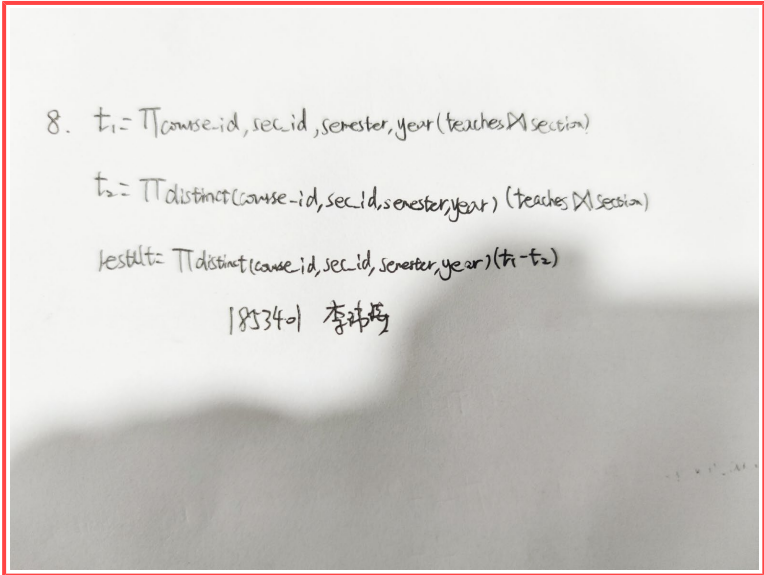 8. t₁= Π course_id, sec_id, semester, year (teaches ⋈ section)
t₂= Π distinct(course-id, sec_id, semester, year) (teaches ⋈ section)
result= Π distinct(course_id, sec_id, semester, year)(t₁-t₂)
1853401 李玮